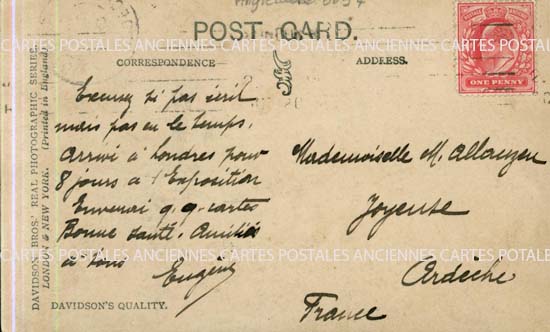 POST CARD.
CORRESPONDENCE
ADDRESS.
ONE PENNY
Excusez si pas écrit
mais pas eu le temps.
Arrivé à Londres pour
8 jours a l'Exposition
Enverrai q.q. cartes
Bonne santé. Amitiés
à tous
Eugène
Mademoiselle M. Allauzen
Joyeuse
Ardèche
France
DAVIDSON BROS.' REAL PHOTOGRAPHIC SERIES.
LONDON & NEW YORK. (Printed in England).
DAVIDSON'S QUALITY.
POSTALES ANCIENNES CARTES POSTALES ANCIENNES CARTES POSTALES
CARTES POSTALES ANCIENNES CARTES POSTALES ANCIENNES CARTES
POSTALES ANCIENNES CARTES POSTALES ANCIENNES CARTES POSTALES